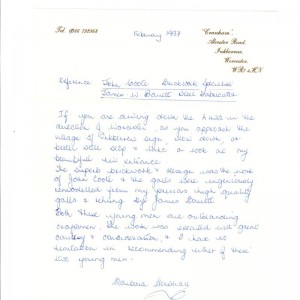 Tel. 0386 792363
"Cranham",
Alcester Road,
Inkberrow,
Worcester,
WR7 4HN
February 1997
Reference John Coote Brickwork specialist
James W Barnett
If you are driving down the A 422 in the
direction of Worcester, as you approach the
village of Inkberrow sign slow down, or
better still stop & take a look at my
beautiful entrance
The superb brickwork & design was the work
of John Coote & the gates were
from my previous high quality
gates & by James Barnett
Both these young men are outstanding
craftsmen. The work was executed with great
courtesy & consideration, & I have no
hesitation in recommending either of these
two young men.
Barbara